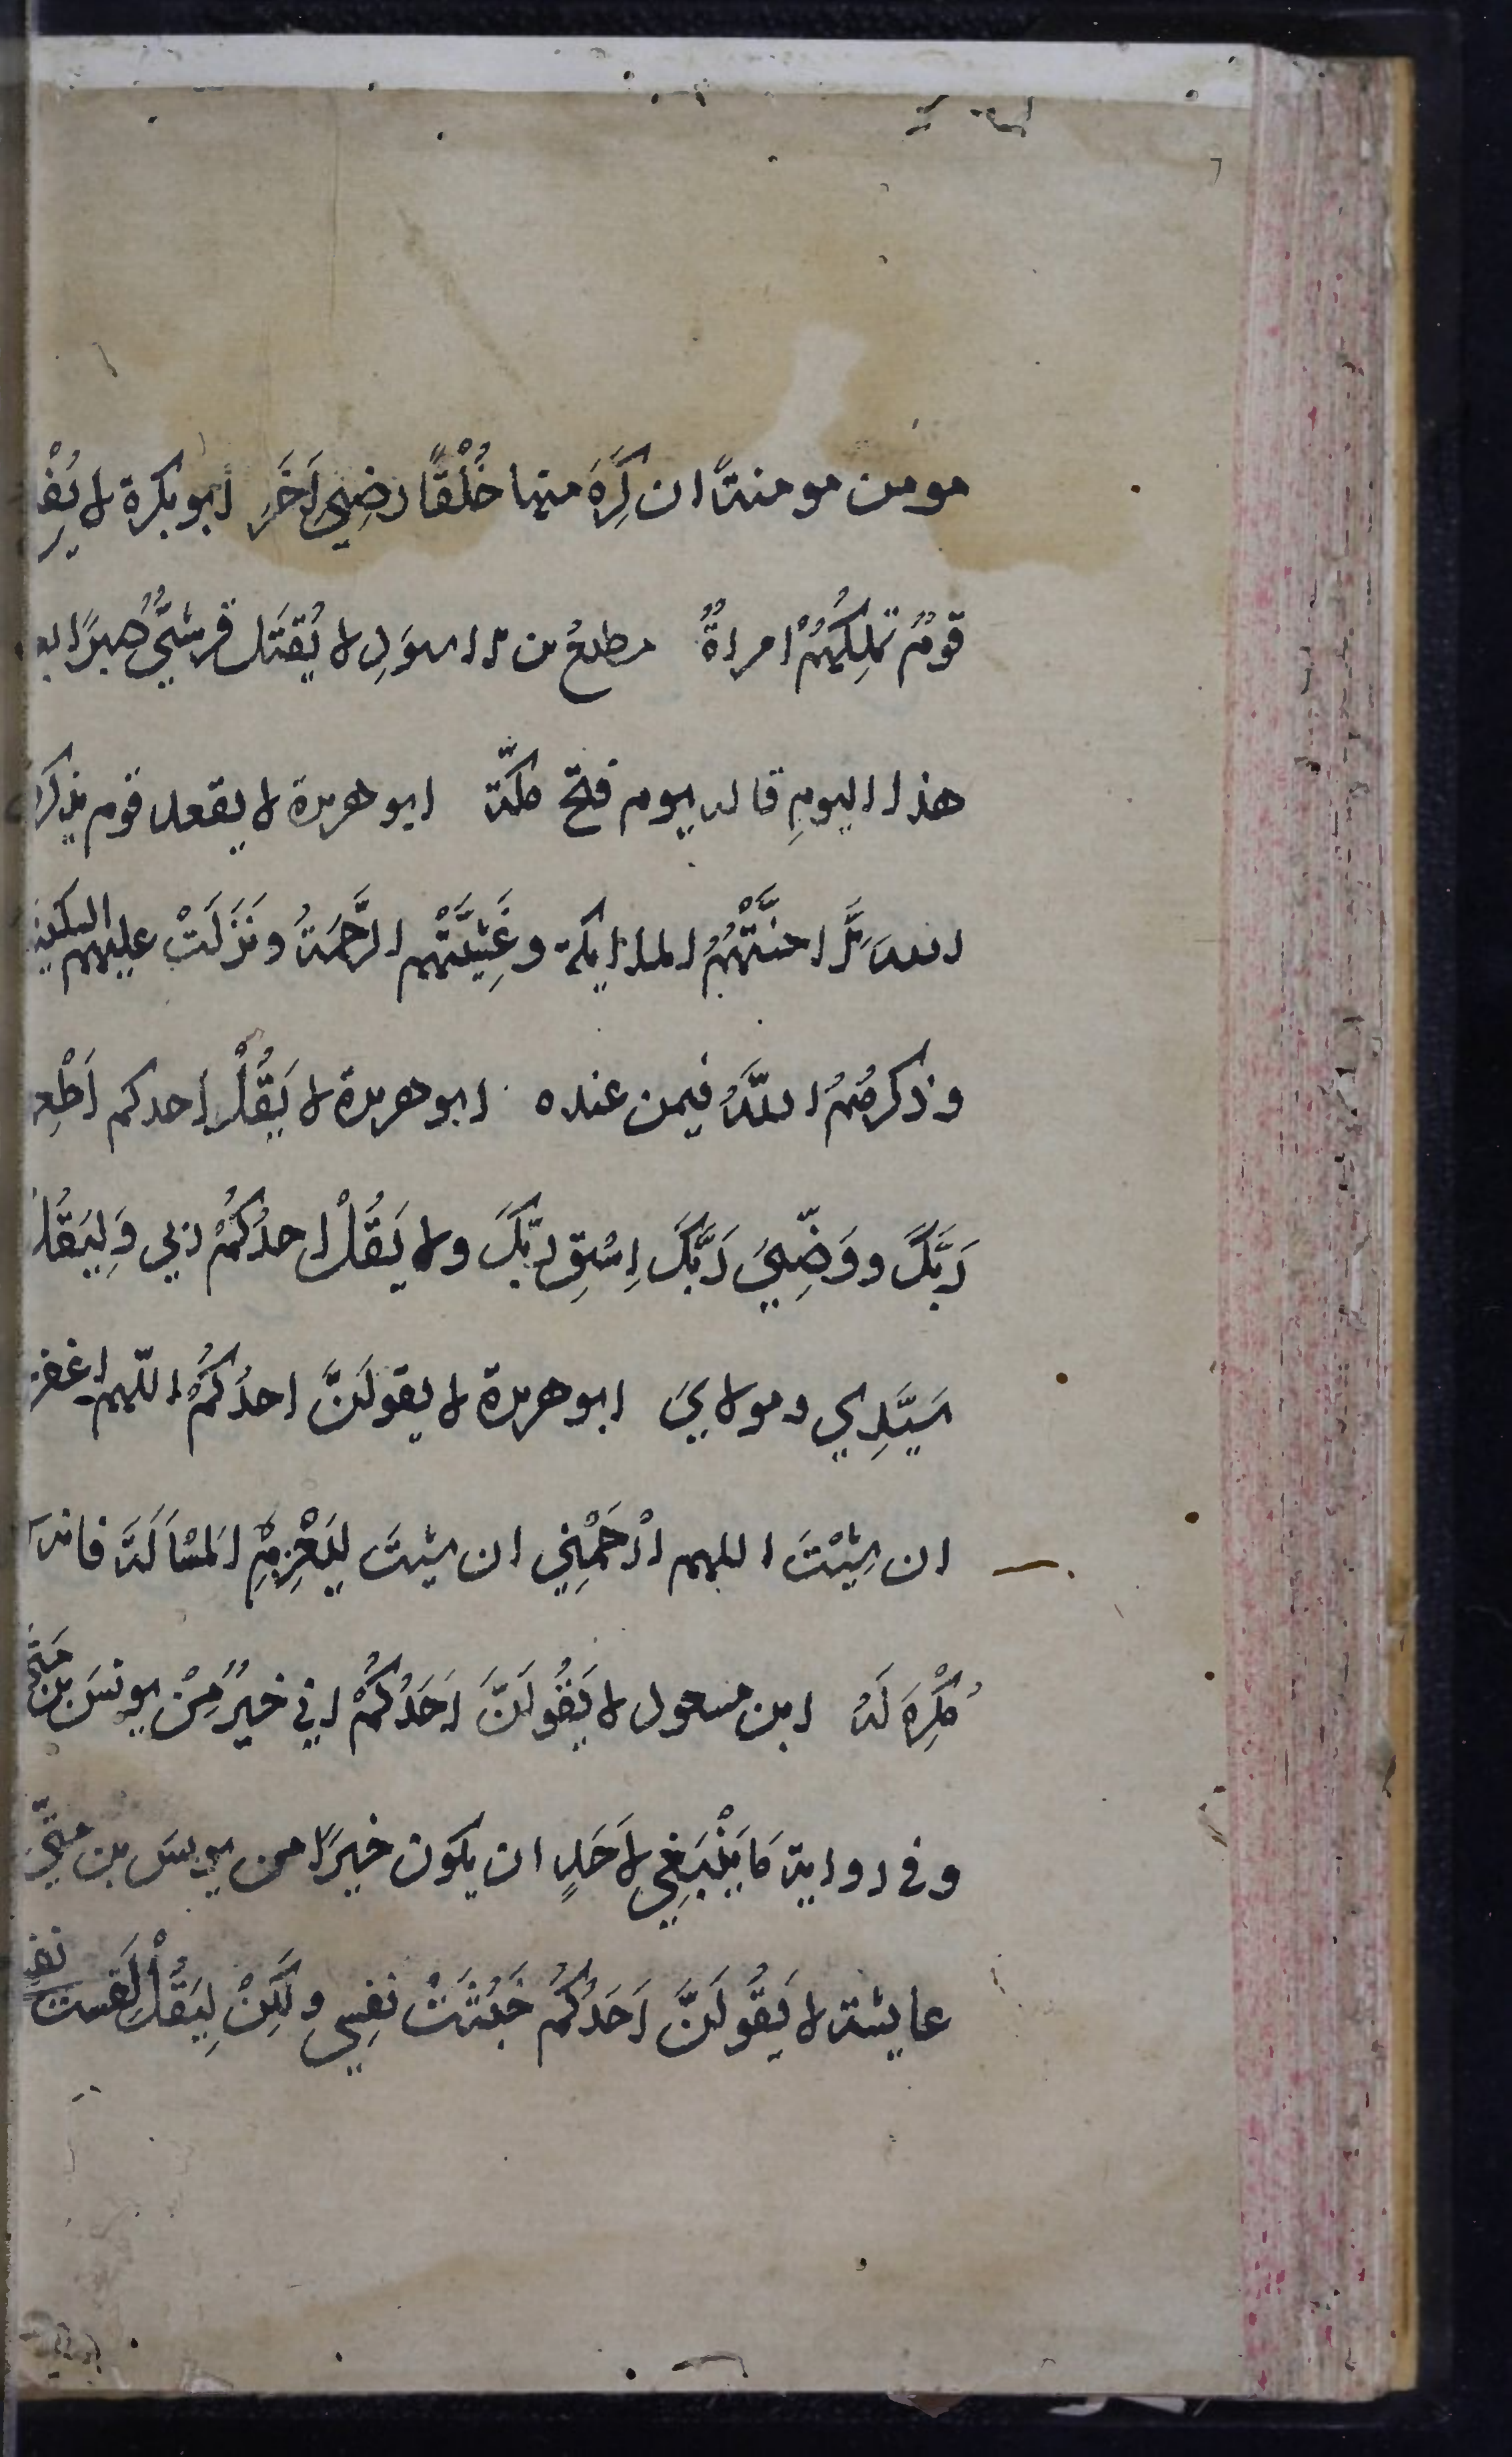 مومن مومنةً ان كَرِهَ منها خُلْقًا رضِيَ آخَرَ ابو بكرة لا يُفْلِح
قومٌ تملِكُهُمْ امراةٌ مطيع بن الاسوَدِ لا يُقتَل قرشيٌّ صبرًا بعد
هذا اليومِ قاله يوم فتح مكّة ابو هريرة لا يقعد قوم يذكرون
اللهَ الَّا حفَّتْهُمُ الملايكة وغَشِيَتْهم الرَّحمَةُ ونَزَلَتْ عليهم السكينة
وذكرهُمُ اللّهُ فيمن عنده ابو هريرة لا يَقُلْ احدكم اَطْعِم
رَبَّكَ ووَضِّئْ رَبَّكَ اِسْقِ رَبَّكَ ولا يَقُلْ احدُكُمْ ربي وَلِيَقُل
سَيِّدِي ومولايَ ابو هريرة لا يقولَنَّ احدُكُمُ اللّهم اغفر
ان شِئْتَ اللهم ارْحَمْنِي ان شيت لِيَعْزِمِ المَسْاَلَةَ فانه لا
مُكْرِهَ لَهُ ابن مسعود لا يَقُولَنَّ اَحَدُكُمْ اني خيرٌ مِنْ يونسَ بن متى
وفي رواية مَا يَنْبَغِي لاَحَدٍ ان يكون خيرًا من يونسَ بن متّى
عايشة لا يَقُولَنَّ اَحَدُكُمْ خَبُثَتْ نفسِي ولكِنْ لِيَقُلْ لَقِسَت نفسي